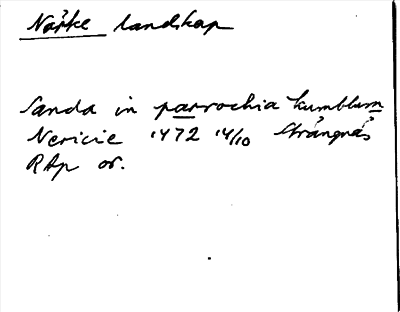 Närke landskap
Sanda in parrochia kumblum
Nericie 1472 14/10 Strängnäs
RAp or.